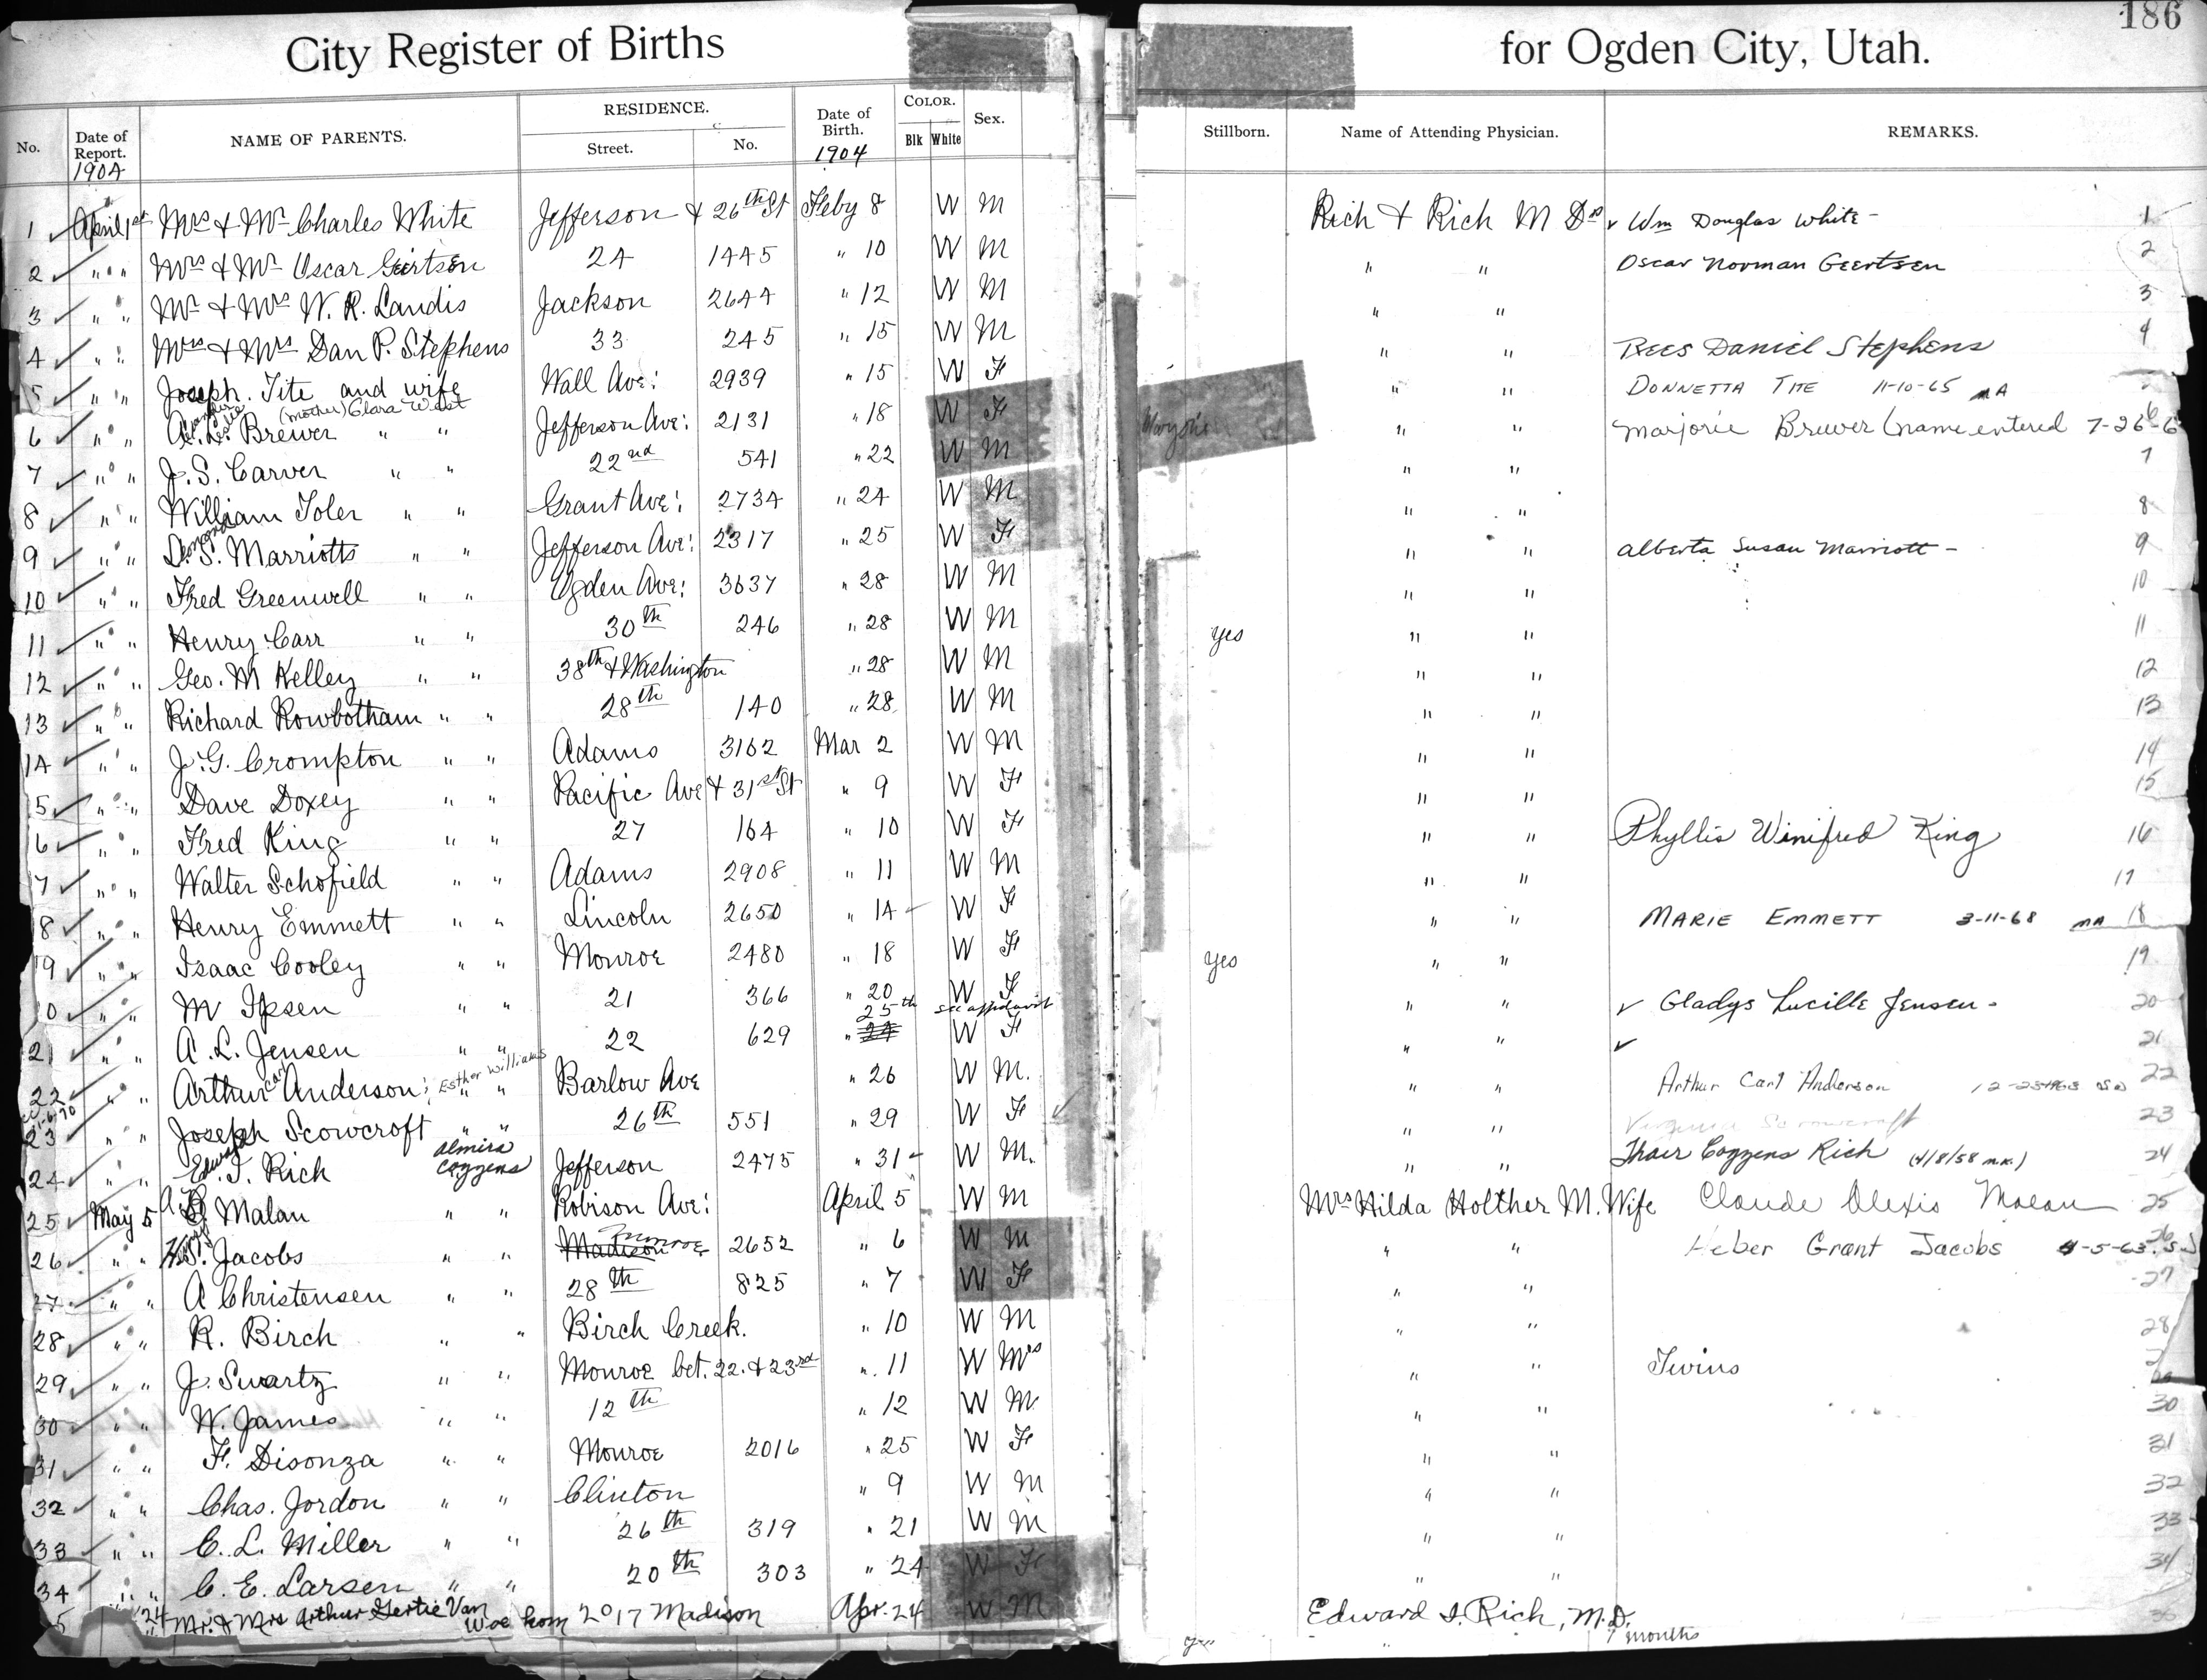 186
City Register of Births for Ogden City, Utah.
No. Date of Report. 1904 NAME OF PARENTS. RESIDENCE. Street. No. Date of Birth. 1904 COLOR. Blk White Sex. Stillborn. Name of Attending Physician. REMARKS.
1 April 1st Mrs & Mr Charles White Jefferson & 26th St Feby 8 W M Rich & Rich M Ds Wm Douglas White - 1
2 " " " Mrs & Mr Oscar Geertsen 24 1445 " 10 W M " " Oscar Norman Geertsen 2
3 " " Mr & Mrs W. R. Landis Jackson 2644 " 12 W M " " 3
4 " " Mrs & Mrs Dan P. Stephens 33 245 " 15 W M " " Rees Daniel Stephens 4
5 " " " Joseph Tite and wife Wall Ave: 2939 " 15 W F " " DONNETTA TITE 11-10-65 MA
(mother) Clara West
6 " " A. L. Brewer " " Jefferson Ave: 2131 " 18 W F Marjorie " " Marjorie Brewer (name entered 7-26-6
7 " " J. S. Carver " " 22nd 541 " 22 W M " " 7
8 " " William Toler " " Grant Ave: 2734 " 24 W M " " 8
9 " " L. S. Marriotts " " Jefferson Ave: 2317 " 25 W F " " Alberta Susan Marriott - 9
10 " " Fred Greenwell " " Ogden Ave: 3637 " 28 W M " " 10
11 " " Henry Carr " " 30th 246 " 28 W M Yes " " 11
12 " " Geo. M Kelley " " 38th & Washington " 28 W M " " 12
13 " " Richard Rowbotham " " 28th 140 " 28 W M " " 13
14 " " J. G. Crompton " " Adams 3162 Mar 2 W M " " 14
5 " " Dave Doxey " " Pacific Ave & 31st St " 9 W F " " 15
6 " " Fred King " " 27 164 " 10 W F " " Phyllis Winifred King 16
7 " " Walter Schofield " " Adams 2908 " 11 W M " " 17
8 " " Henry Emmett " " Lincoln 2650 " 14 W F " " MARIE EMMETT 3-11-68 MA 18
19 " " Isaac Cooley " " Monroe 2480 " 18 W F Yes " " 19
0 " " M Ipsen " " 21 366 " 20 W F " " Gladys Lucille Jensen - 20
25th see affidavit
21 " " A. L. Jensen " " 22 629 " 24 W F " " 21
22 " " Arthur Carl Anderson; Esther Williams " " Barlow Ave " 26 W M. " " Arthur Carl Anderson 22
23 " " Joseph Scowcroft " " 26th 551 " 29 W F " " Scowcroft 23
24 Edward I. Rich Almira Cozzens Jefferson 2475 " 31 W M. " " Thair Cozzens Rich (4/8/58 m.k.) 24
25 May 5 Malan " " Robison Ave: April 5 W M Mrs Hilda Holther M. Wife Claude Alexis Malan 25
26 " " Jacobs " " Madison Monroe 2652 " 6 W M " " Heber Grant Jacobs 4-5-63 26
27 " " A Christensen " " 28th 825 " 7 W F " " 27
28 " " R. Birch " " Birch Creek. " 10 W M " " 28
29 " " J. Swartz " " Monroe bet. 22. & 23rd " 11 W Ms " " Twins
30 " " W. James " " 12th " 12 W M " " 30
31 " " F. Disonza " " Monroe 2016 " 25 W F " " 31
32 " " Chas. Jordon " " Clinton " 9 W M " " 32
33 " " C. L. Miller " " 26th 319 " 21 W M " " 33
34 " " C. E. Larsen " " 20th 303 " 24 W F " " 34
5 " 24 Mr. & Mrs Arthur Gertie Van Woekom 2017 Madison Apr. 24 W M Edward I. Rich, M.D.
7 months